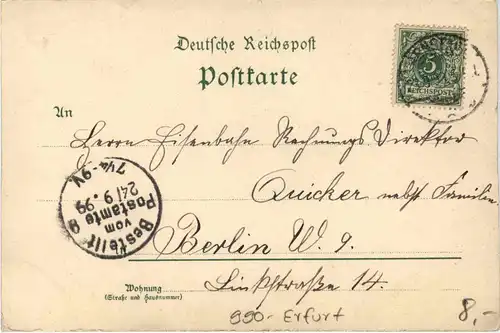 Deutsche Reichspost
Postkarte
5
REICHSPOST
An
Herrn Eisenbahn Rechnungs Direktor
Quicker nebst Familie
Bestellt
vom
Postamte 9
24/9.99
7¼-9V
Berlin W. 9.
Linkstraße 14.
Wohnung
(Straße und Hausnummer)
990- Erfurt
8,-